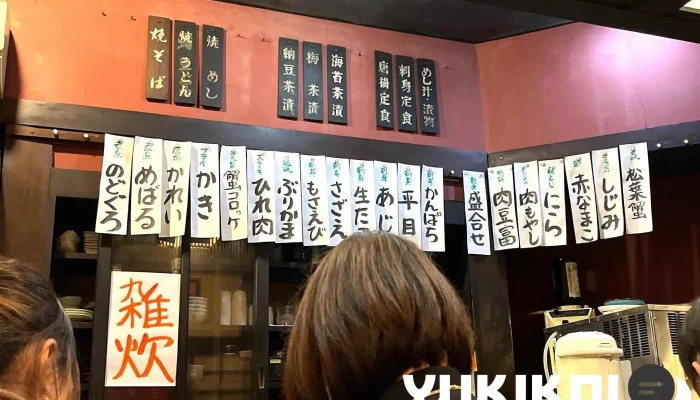 焼そば
焼うどん
焼めし
納豆茶漬
梅茶漬
海苔茶漬
唐揚定食
刺身定食
めし汁漬物
のどぐろ
めばる
かれい
フライ
かき
蟹コロッケ
ステーキ
ひれ肉
ぶりかま
もさえび
さざえ
生た
あじ
平目
かんぱち
盛合せ
肉豆富
肉もやし
にら
赤なまこ
しじみ
松葉蟹
雑炊